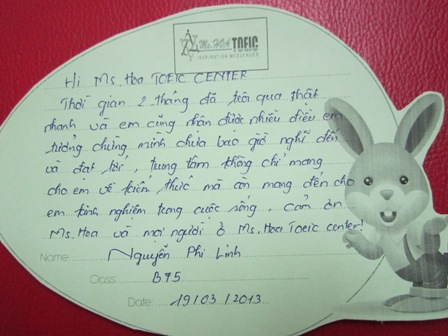 Ms. HOA TOEIC
INSPIRATION MESSENGER
Hi Ms. Hoa TOEIC CENTER
Thời gian 2 tháng đã trôi qua thật
nhanh và em cũng nhận được nhiều điều em
tưởng chừng mình chưa bao giờ nghĩ đến
và đạt tới, trung tâm không chỉ mang
cho em về kiến thức mà còn mang đến cho
em kinh nghiệm trong cuộc sống, cảm ơn
Ms. Hoa và mọi người ở Ms. Hoa Toeic center!
Name Nguyễn Phi Linh
Class: B75
Date: 19/03/2013.